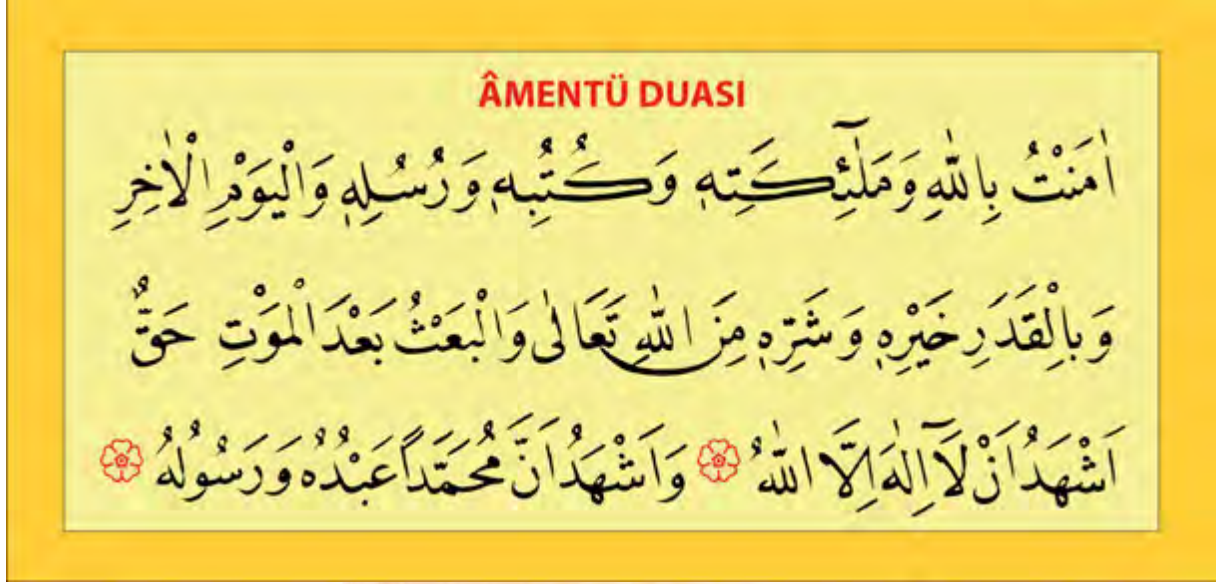 ÂMENTÜ DUASI
اٰمَنْتُ بِاللّٰهِ وَمَلٰٓئِكَتِه۪ وَكُتُبِه۪ وَرُسُلِه۪ وَالْيَوْمِ الْاٰخِرِ
وَبِالْقَدَرِ خَيْرِه۪ وَشَرِّه۪ مِنَ اللّٰهِ تَعَالٰى وَالْبَعْثُ بَعْدَ الْمَوْتِ حَقٌّ
اَشْهَدُ اَنْ لَٓا اِلٰهَ اِلَّا اللّٰهُ وَاَشْهَدُ اَنَّ مُحَمَّدًا عَبْدُهُ وَرَسُولُهُ